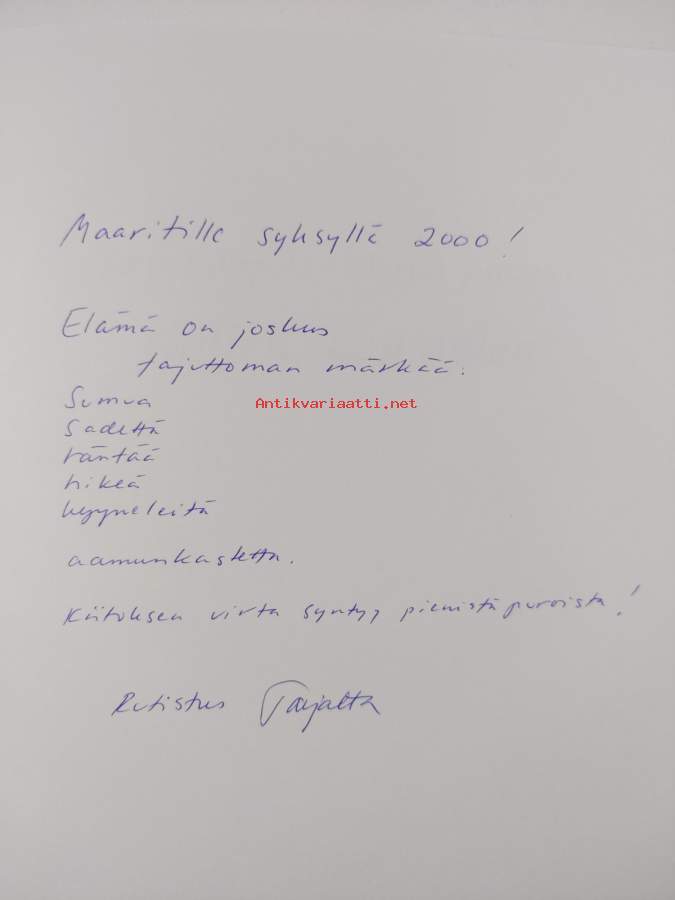 Maaritille syksyllä 2000!
Elämä on joskus
tajuttoman märkää:
Sumua
Antikvariaatti.net
Sadetta
räntää
hikeä
kyyneleitä
aamunkastetta.
Kiitoksen virta syntyy pienistä puroista!
Rutistus Tarjalta